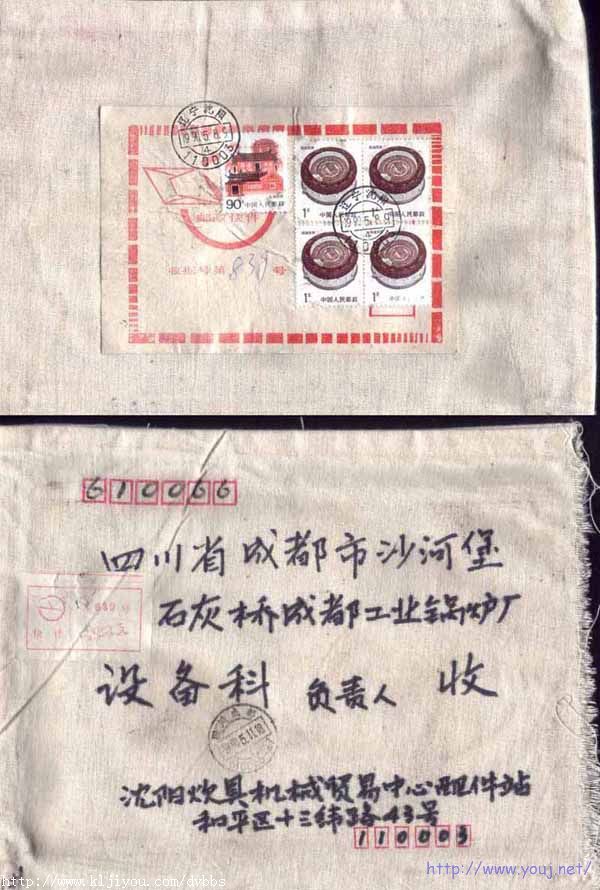 辽宁沈阳
1990.5.8.9
4
110003
90分 中国人民邮政
快件
收据号第 839 号
1元
中国人民邮政
1元
中国人民邮政
辽宁沈阳
1990.5.8.9
1元
中国人民邮政
1元
中国人民邮政
610066
四川省成都市沙河堡
石灰桥成都工业锅炉厂
设备科 负责人 收
1990.5.11.18
沈阳炊具机械贸易中心配件站
和平区十三纬路43号
110003
http://www.kljiyou.com/dvbbs
http://www.youj.net/